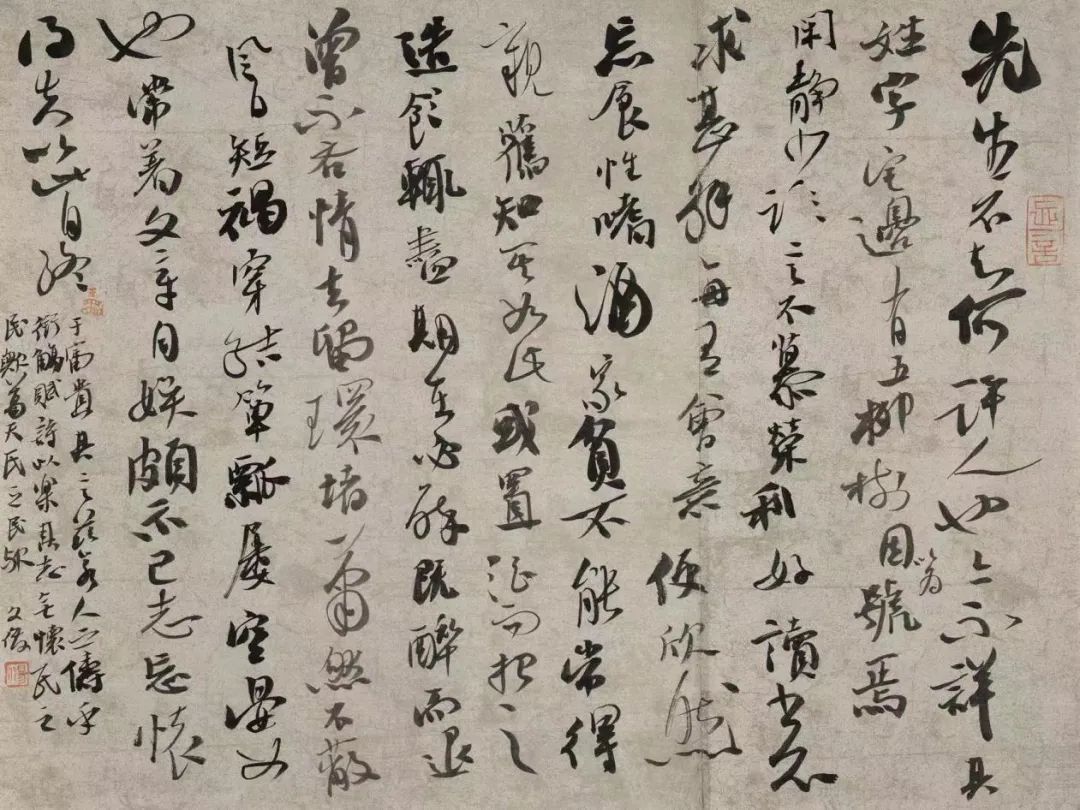 先生不知何許人也亦不詳其
姓字宅邊有五柳樹因以為號焉
閑静少語言不慕榮利好讀書不
求甚解每有會意便欣然
忘食性嗜酒家貧不能常得
親舊知其如此或置酒而招之
造飲輒盡期在必醉既醉而退
曾不吝情去留環堵蕭然不蔽
風日短褐穿結簞瓢屢空晏如
也常著文章自娱頗示己志忘懷
得失以此自終
于富貴其言茲若人之儔乎
銜觴賦詩以樂其志無懷氏之
民歟葛天氏之民歟